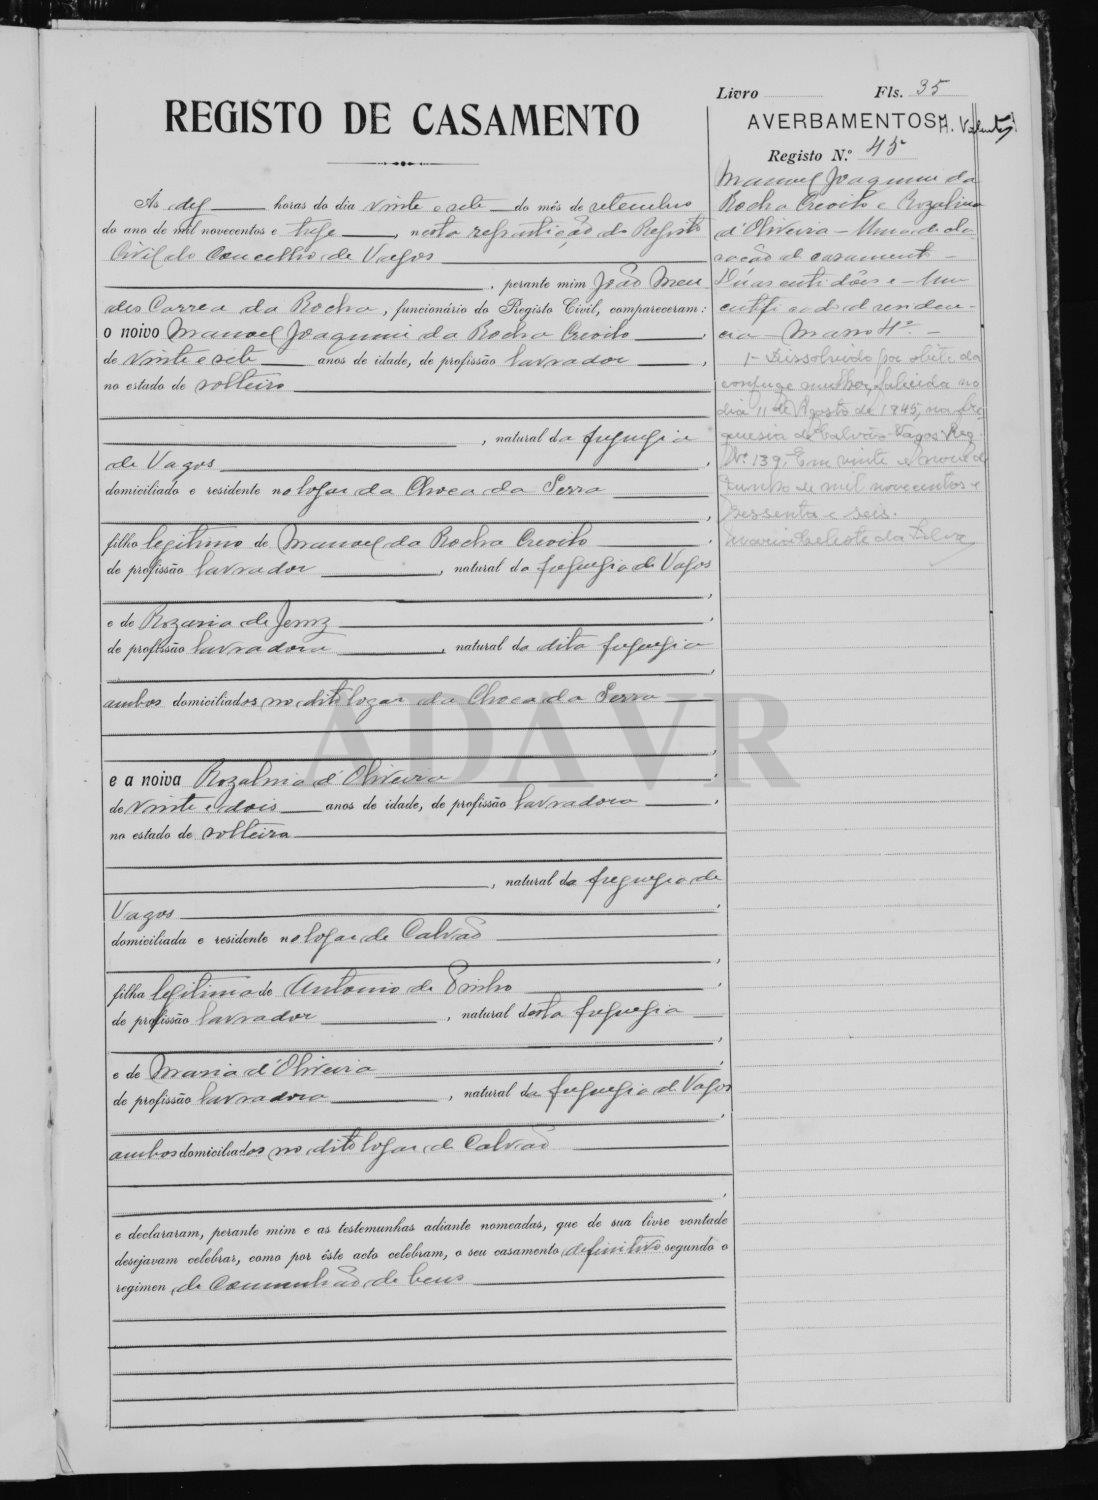 Livro Fls. 35
REGISTO DE CASAMENTO
AVERBAMENTOS
Registo N.º 45
Ás dez horas do dia vinte e sete do mês de setembro
do ano de mil novecentos e treze, nesta repartição do Registo
Civil do Concelho de Vagos
, perante mim João Men
des Correa da Rocha, funcionário do Registo Civil, compareceram:
o noivo Manoel Joaquim da Rocha Creoilo,
de vinte e sete anos de idade, de profissão lavrador,
no estado de solteiro
, natural da freguezia
de Vagos,
domiciliado e residente no logar da Choca da Serra
,
filho legitimo de Manoel da Rocha Creoilo,
de profissão lavrador, natural da freguezia de Vagos
,
e de Rozaria de Jemz,
de profissão lavradora, natural da dita freguezia
,
ambos domiciliados no dito logar da Choca da Serra
,
e a noiva Rozalina d'Oliveira,
de vinte e dois anos de idade, de profissão lavradora,
no estado de solteira
, natural da freguezia de
Vagos,
domiciliada e residente no logar de Calvão
,
filha legitima de Antonio de Pinho,
de profissão lavrador, natural desta freguezia
,
e de Maria d'Oliveira,
de profissão lavradora, natural da freguezia de Vagos
,
ambos domiciliados no dito logar de Calvão
,
e declararam, perante mim e as testemunhas adiante nomeadas, que de sua livre vontade
desejavam celebrar, como por êste acto celebram, o seu casamento definitivo segundo o
regimen de Comunhão de bens
Manuel Joaquim da
Rocha Creoilo e Rozalina
d'Oliveira — Uma de cla
ração de casamento —
Duas certidões e — Um
certificado de residen-
cia — Maço 4º. —
1 - Dissolvido por obito da
conjuge mulher, falecida no
dia 11 de Agosto de 1945, na fre
guesia de Calvão - Vagos - Reg.
Nº. 139. Em vinte e nove de
Junho de mil novecentos e
sessenta e seis.
Maria Celeste da Silva
ADAVR